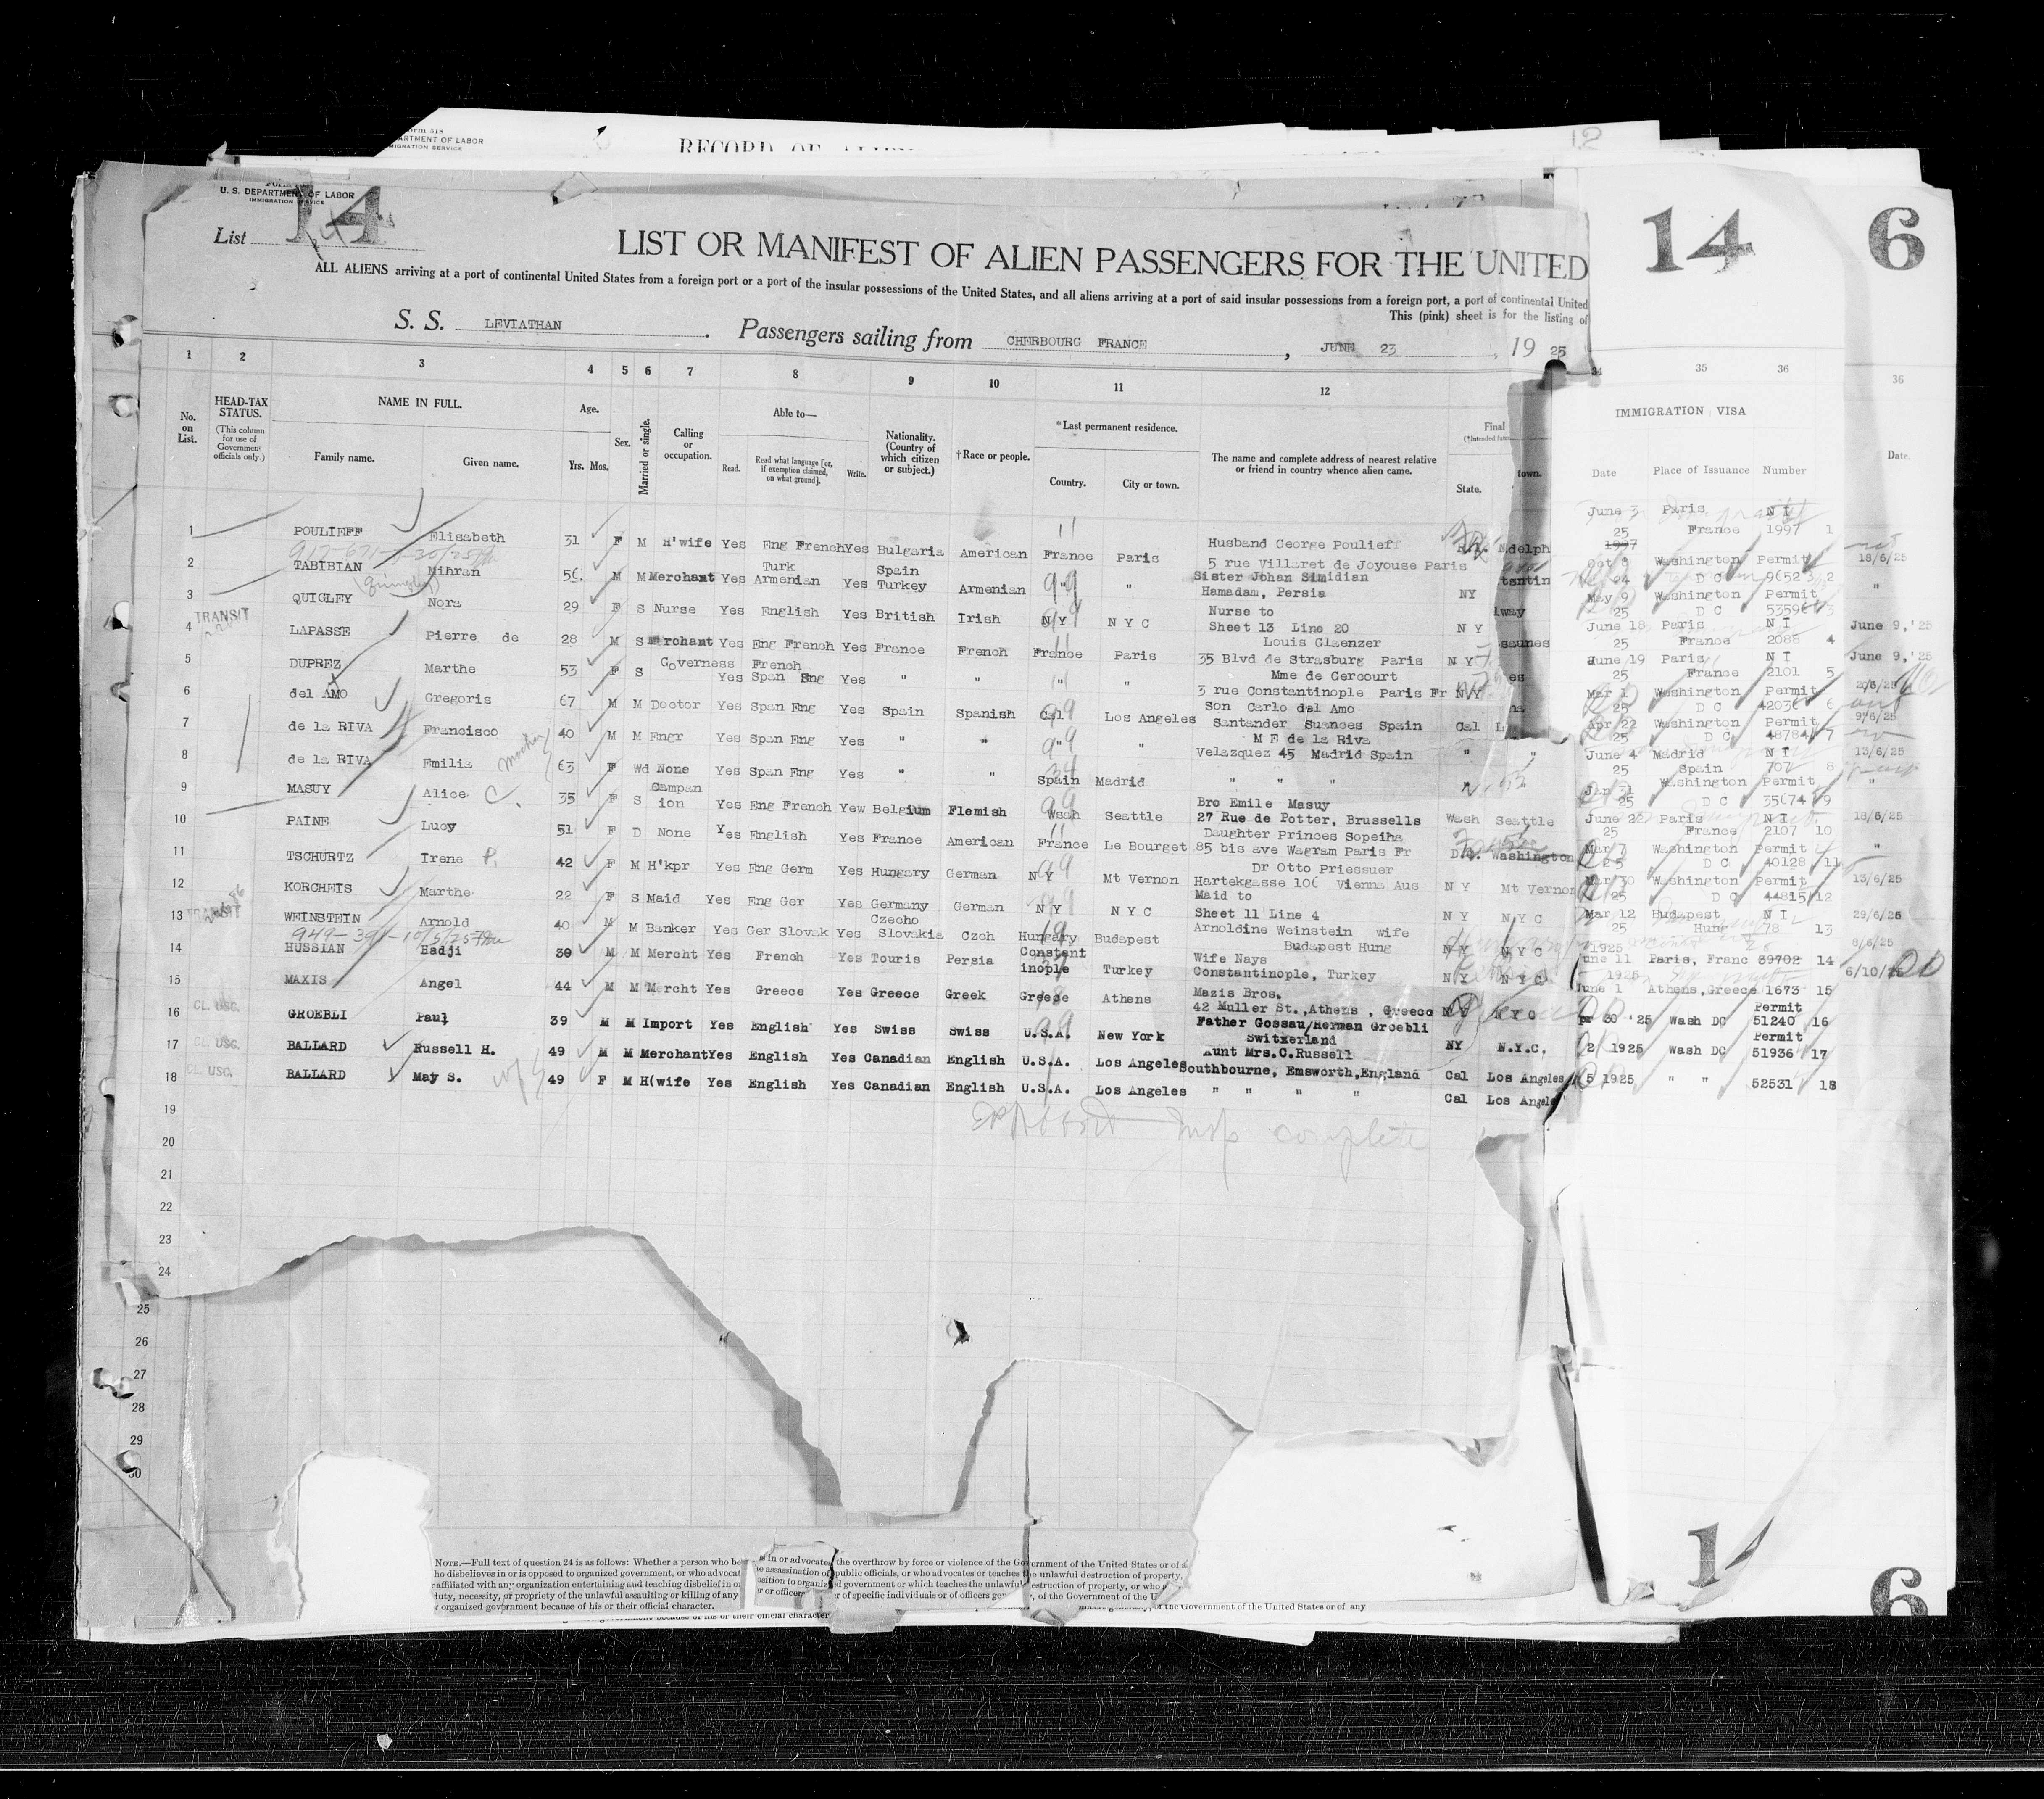 orm 518
ARTMENT OF LABOR
MIGRATION SERVICE
RECORD OF ALIEN
12
U. S. DEPARTMENT OF LABOR
IMMIGRATION SERVICE
List 14
14 6
LIST OR MANIFEST OF ALIEN PASSENGERS FOR THE UNITED
ALL ALIENS arriving at a port of continental United States from a foreign port or a port of the insular possessions of the United States, and all aliens arriving at a port of said insular possessions from a foreign port, a port of continental United
This (pink) sheet is for the listing of
S. S. LEVIATHAN. Passengers sailing from CHERBOURG FRANCE, JUNE 23, 19 25
1 2 3 4 5 6 7 8 9 10 11 12 34 35 36 36
No. on List.
HEAD-TAX STATUS.
(This column for use of Government officials only.)
NAME IN FULL.
Family name. Given name.
Age.
Yrs. Mos.
Sex.
Married or single.
Calling or occupation.
Able to—
Read. Read what language [or, if exemption claimed, on what ground]. Write.
Nationality. (Country of which citizen or subject.)
†Race or people.
*Last permanent residence.
Country. City or town.
The name and complete address of nearest relative or friend in country whence alien came.
Final
State. town.
IMMIGRATION VISA
Date Place of Issuance Number
Date.
1 POULIEFF Elisabeth 31 F M H'wife Yes Eng French Yes Bulgaria American France Paris Husband George Poulieff
5 rue Villaret de Joyouse Paris
June 3 Paris N I
25 France 1997 1
2 TABIBIAN Mihran 56 M M Merchant Yes Turk Armenian Yes Spain Turkey Armenian " " Sister Johan Simidian
Hamadam, Persia NY
Washington Permit 18/6/25
24 D C 9652 2
3 QUIGLEY Nora 29 F S Nurse Yes English Yes British Irish N Y N Y C Nurse to
Sheet 13 Line 20 N Y
May 9 Washington Permit "
25 D C 53596 3
TRANSIT
4 LAPASSE Pierre de 28 M S Merchant Yes Eng French Yes France French France Paris Louis Glaenzer
35 Blvd de Strasburg Paris N Y
June 18 Paris N I June 9,'25
25 France 2088 4
5 DUPREZ Marthe 53 F S Governess Yes French Span Eng Yes " " " " Mme de Cercourt
3 rue Constantinople Paris Fr N Y
June 19 Paris N I June 9,'25
25 France 2101 5
6 del AMO Gregoris 67 M M Doctor Yes Span Eng Yes Spain Spanish Cal Los Angeles Son Carlo del Amo
Santander Suances Spain Cal
Mar 1 Washington Permit 2/6/25
25 D C 42036 6
7 de la RIVA Francisco 40 M M Engr Yes Span Eng Yes " " " " M E de la Riva
Velazquez 45 Madrid Spain " "
Apr 22 Washington Permit 9/6/25
25 D C 48784 7
8 de la RIVA Emilia 63 F Wd None Yes Span Eng Yes " " Spain Madrid " " "
June 4 Madrid N I 13/6/25
25 Spain 707 8
9 MASUY Alice C. 35 F S Campan ion Yes Eng French Yew Belgium Flemish Wash Seattle Bro Emile Masuy
27 Rue de Potter, Brussells Wash Seattle
Jan 31 Washington Permit "
25 D C 35674 9
10 PAINE Lucy 51 F D None Yes English Yes France American France Le Bourget Daughter Princes Sopeiha
85 bis ave Wagram Paris Fr Washington
June 22 Paris N I 18/6/25
25 France 2107 10
11 TSCHURTZ Irene 42 F M H'kpr Yes Eng Germ Yes Hungary German N Y Mt Vernon Dr Otto Priessuer
Hartekgasse 106 Vienna Aus N Y Mt Vernon
Mar 7 Washington Permit "
25 D C 40128 11
12 KORCHEIS Marthe 22 F S Maid Yes Eng Ger Yes Germany German N Y N Y C Maid to
Sheet 11 Line 4 N Y N Y C
Mar 30 Washington Permit 13/6/25
25 D C 44815 12
TRANSIT
13 WEINSTEIN Arnold 40 M M Banker Yes Ger Slovak Yes Czecho Slovakia Czch Hungary Budapest Arnoldine Weinstein wife
Budapest Hung N Y N Y C
Mar 12 Budapest N I 29/6/25
25 Hung 78 13
14 HUSSIAN Hadji 30 M M Mercht Yes French Yes Touris Persia Constant inople Turkey Wife Nays
Constantinople, Turkey N Y N Y C
1925 8/6/25
une 11 Paris, Franc 39702 14
15 MAXIS Angel 44 M M Mercht Yes Greece Yes Greece Greek Greece Athens Mazis Bros.
42 Muller St., Athens , Greece N Y N Y C
1925 6/10/25
June 1 Athens, Greece 1673 15
CL. USG.
16 GROEBLI Paul 39 M M Import Yes English Yes Swiss Swiss U.S.A. New York Father Gossau/Herman Groebli
Switxerland NY N.Y.C.
30 '25 Wash DC Permit 51240 16
CL. USG.
17 BALLARD Russell H. 49 M M Merchant Yes English Yes Canadian English U.S.A. Los Angeles Aunt Mrs.C.Russell
Southbourne, Emsworth, England Cal Los Angeles
2/ 1925 Wash DC Permit 51936 17
CL. USG.
18 BALLARD May S. 49 F M H(wife Yes English Yes Canadian English U.S.A. Los Angeles " " " "
Cal Los Angele
5 1925 " " 52531 18
19
insp complete
20
21
22
23
24
25
26
27
28
29
30
14
6
NOTE.—Full text of question 24 is as follows: Whether a person who be in or advocates the overthrow by force or violence of the Government of the United States or of a
ho disbelieves in or is opposed to organized government, or who advocat e assassination of public officials, or who advocates or teaches the unlawful destruction of property,
affiliated with any organization entertaining and teaching disbelief in o position to organized government or which teaches the unlawful destruction of property, or who
duty, necessity, or propriety of the unlawful assaulting or killing of any r or officer r of specific individuals or of officers gen , of the Government of the U
r organized government because of his or their official character.
government because of his or their official character
of the Government of the United States or of any